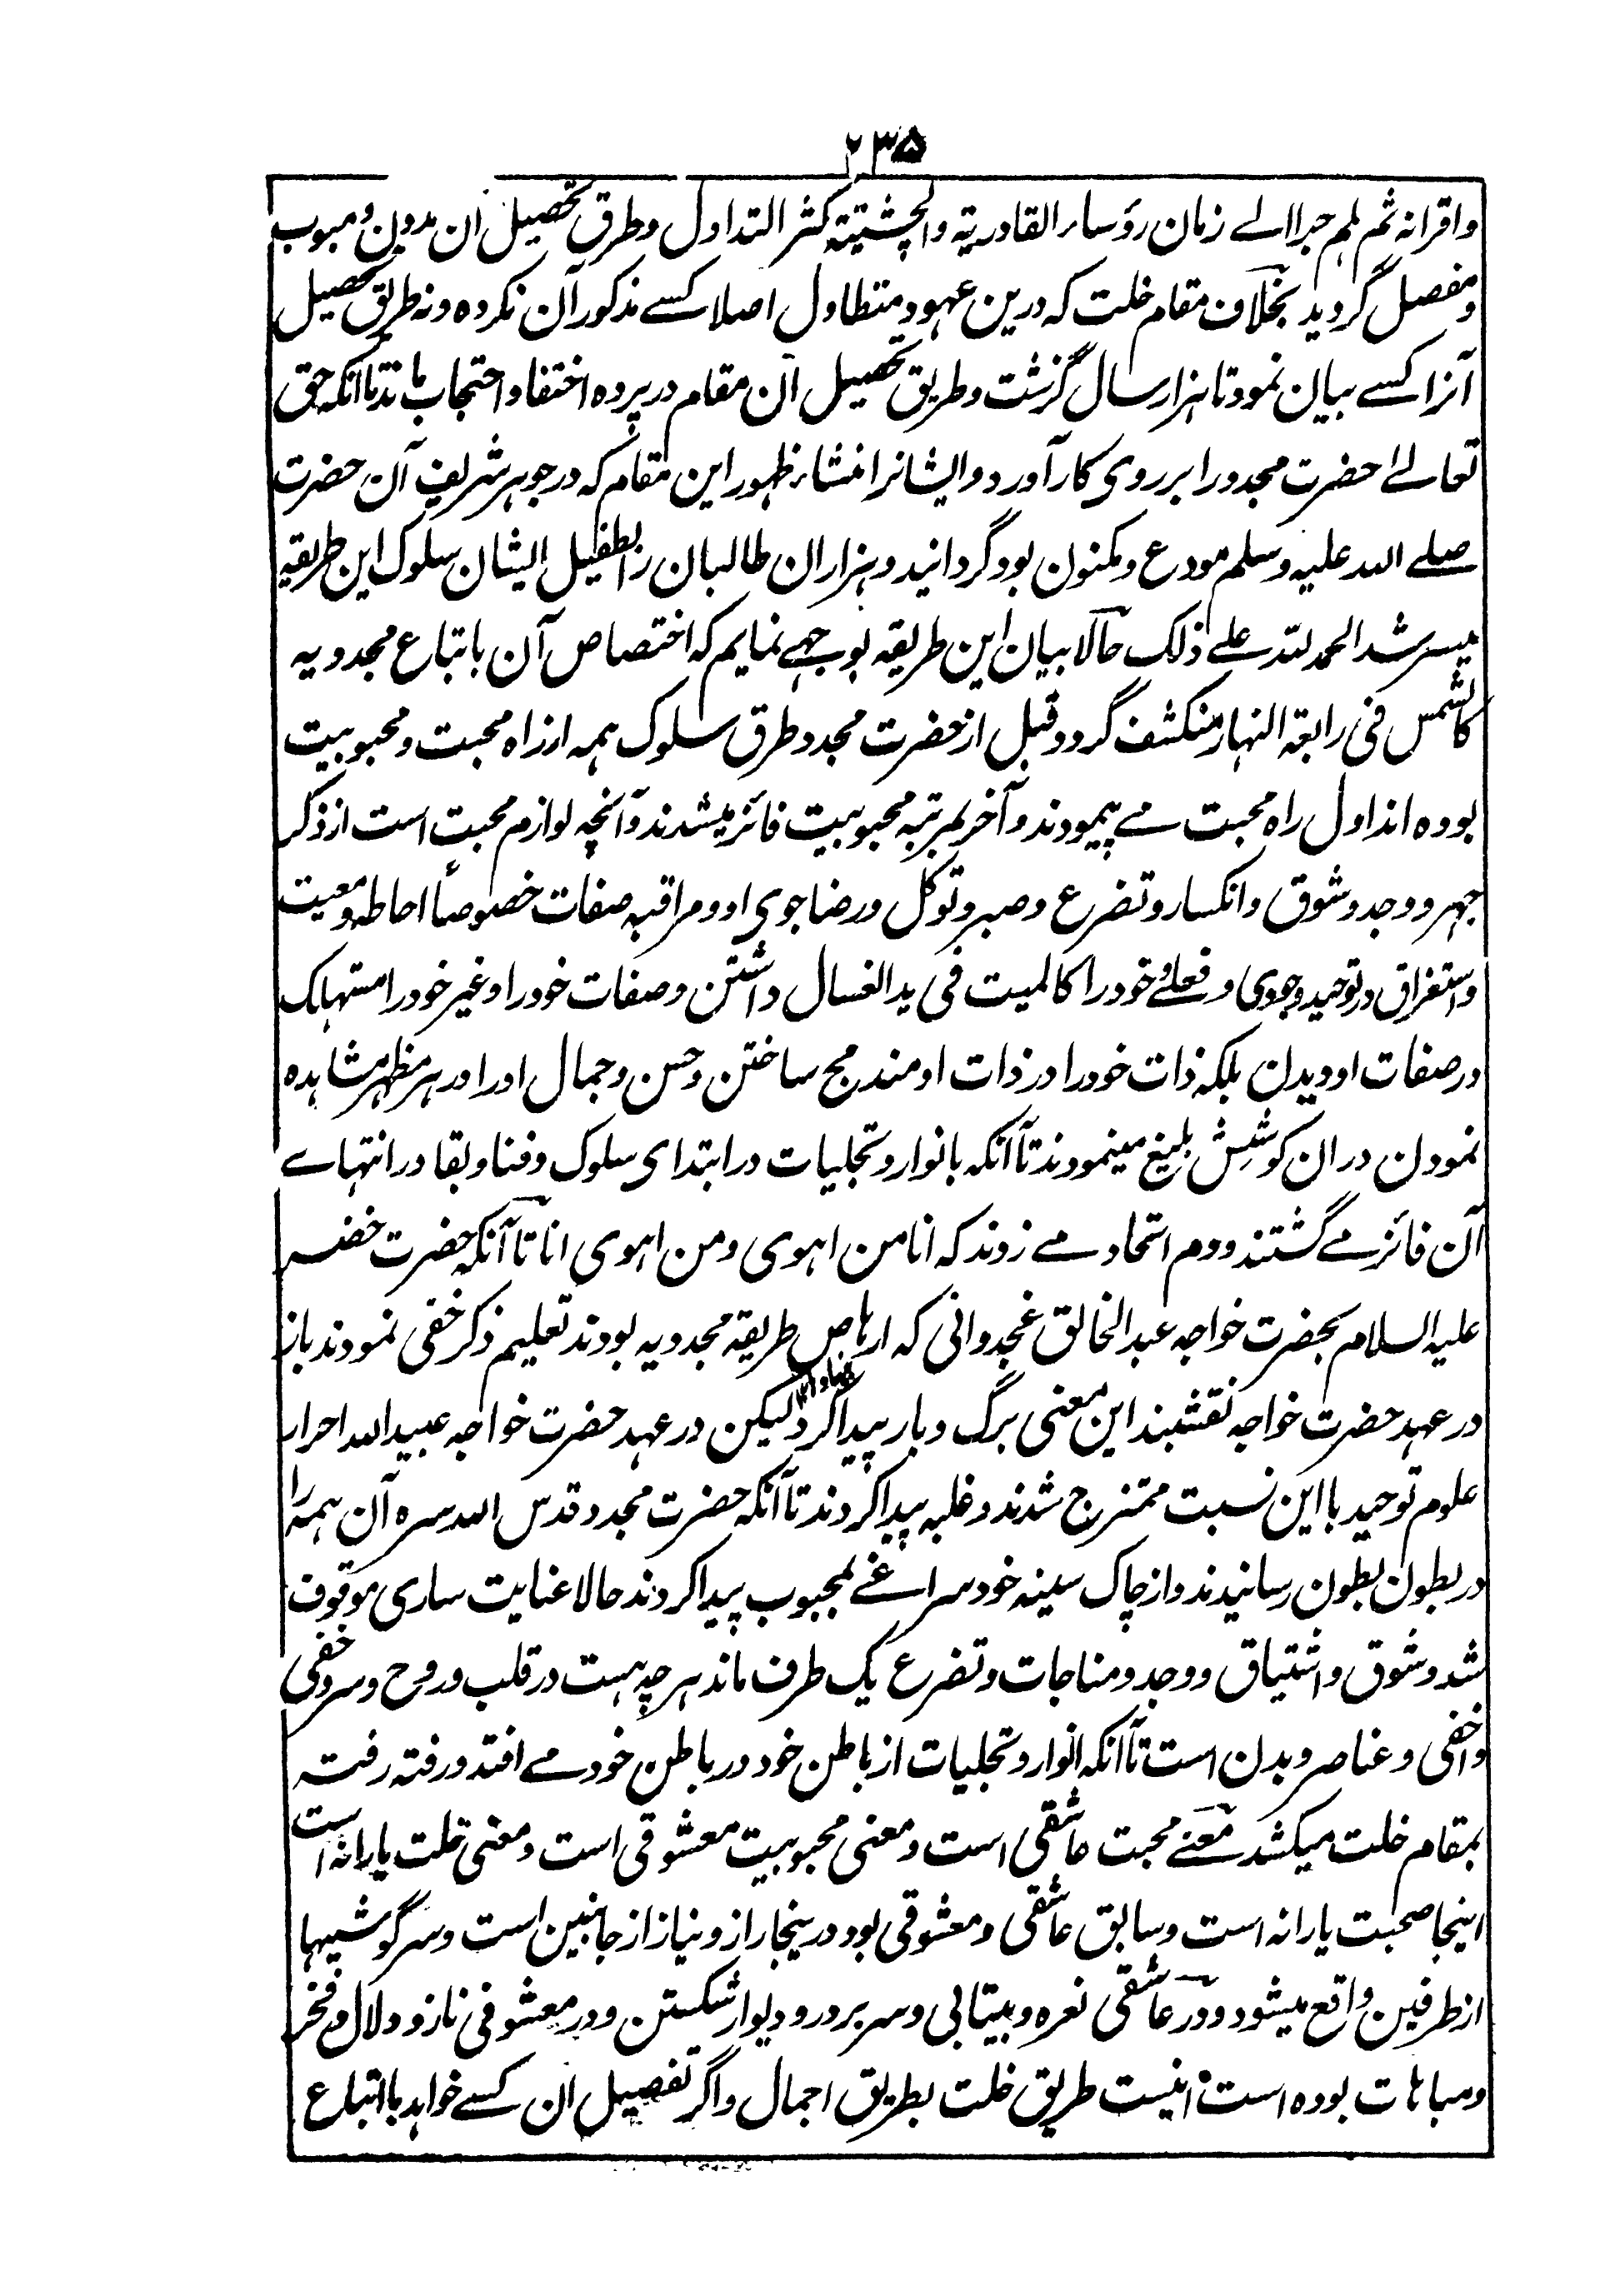 ۲۳۵
واقرانه ثم لهم جرا الے زمان رؤساء القادریة والچشتیة کثر التداول وطرق تحصیل ان مدون و مبوب
و مفصل گردید بخلاف مقام خلت که درین عهود متطاول اصلا کسے مذکور آن نکرده و نه طریق تحصیل
آنرا کسے بیان نمود تا هزار سال گزشت و طریق تحصیل ان مقام در پرده اختفا و احتجاب ماند تا آنکه حق
تعالے احضرت مجدد را بر روی کار آورد و ایشانرا منشاء ظهور این مقام که در جوهر شریف آن حضرت
صلے الله علیه وسلم مودع و مکنون بود گردانید و هزاران طالبان را بطفیل ایشان سلوک این طریقه
میسر شد الحمد لله علے ذلک حالا بیان این طریقه بوجهے نمایم که اختصاص آن باتباع مجددیه
کالشمس فی رابعة النهار منکشف گردد قبل از حضرت مجدد طرق سلوک همه از راه محبت و محبوبیت
بوده اند اول راه محبت مے پیمودند و آخر بمرتبه محبوبیت فائز میشدند و آنچه لوازم محبت است از ذکر
جهر و وجد و شوق و انکسار و تضرع و صبر و توکل و رضا جوی او و مراقبه صفات خصوصاً احاطه و معیت
و استغراق در توحید وجودی و فعلے و خود را کالمیت فی ید الغسال داشتن و صفات خود را و غیر خود را مستهلک
در صفات او دیدن بلکه ذات خود را در ذات او مندمج ساختن و حسن و جمال او را در هر مظهر مشاهده
نمودن در ان کوشش بلیغ مینمودند تا آنکه بانوار و تجلیات در ابتدای سلوک و فنا و بقا در انتهاے
آن فائز مے گشتند و دم اتحاد مے زدند که انا من اهوی و من اهوی انا تا آنکه حضرت خضر
علیه السلام بحضرت خواجه عبد الخالق غجدوانی که ارهاص طریقه مجددیه بودند تعلیم ذکر خفی نمودند باز
در عهد حضرت خواجه نقشبند این معنی برگ و بار پیدا کرد لیکن در عهد حضرت خواجه عبید الله احرار
علوم توحید با این نسبت ممتزج شدند و غلبه پیدا کردند تا آنکه حضرت مجدد قدس الله سره آن همه را
در بطون بطون رسانیدند و از چاک سینه خود سراغے بمحبوب پیدا کردند حالا عنایت ساری موقوف
شد و شوق و اشتیاق و وجد و مناجات و تضرع یک طرف ماند هر چه هست در قلب و روح و سر و خفی
و اخفی و عناصر و بدن است تا آنکه انوار و تجلیات از باطن خود در باطن خود مے افتد و رفته رفته
بمقام خلت میکشد معنے محبت عاشقی است و معنی محبوبیت معشوقی است و معنی خلت یارانه است
اینجا صحبت یارانه است و سابق عاشقی و معشوقی بود درینجا راز و نیاز از جانبین است و سرگوشیها
از طرفین واقع میشود و در عاشقی نعره و بیتابی و سر بر در و دیوار شکستن و در معشوقی ناز و دلال و فخر
و مباهات بوده است اینست طریق خلت بطریق اجمال و اگر تفصیل ان کسے خواهد با اتباع